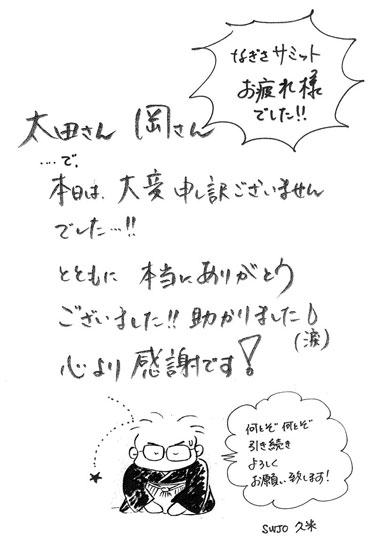 なぎさサミット
お疲れ様
でした!!
太田さん 岡さん
‥‥で、
本日は、大変申し訳ございません
でした…!!
とともに 本当にありがとう
ございました!! 助かりました
(涙)
心より感謝です!
何とぞ 何とぞ
引き続き
よろしく
お願い致します!
SWJO 久米